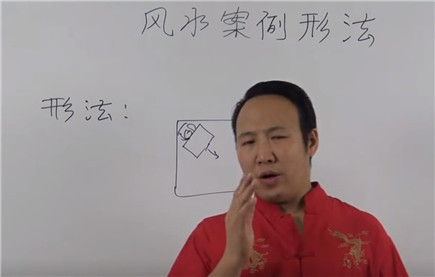 风水案例形法
形法：